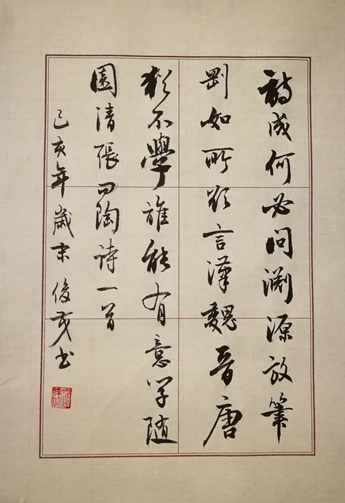 詩成何必問淵源放筆
剛如所欲言漢魏晉唐
猶不學誰能有意學隨
園清張問陶詩一首
己亥年歲末俊茂书